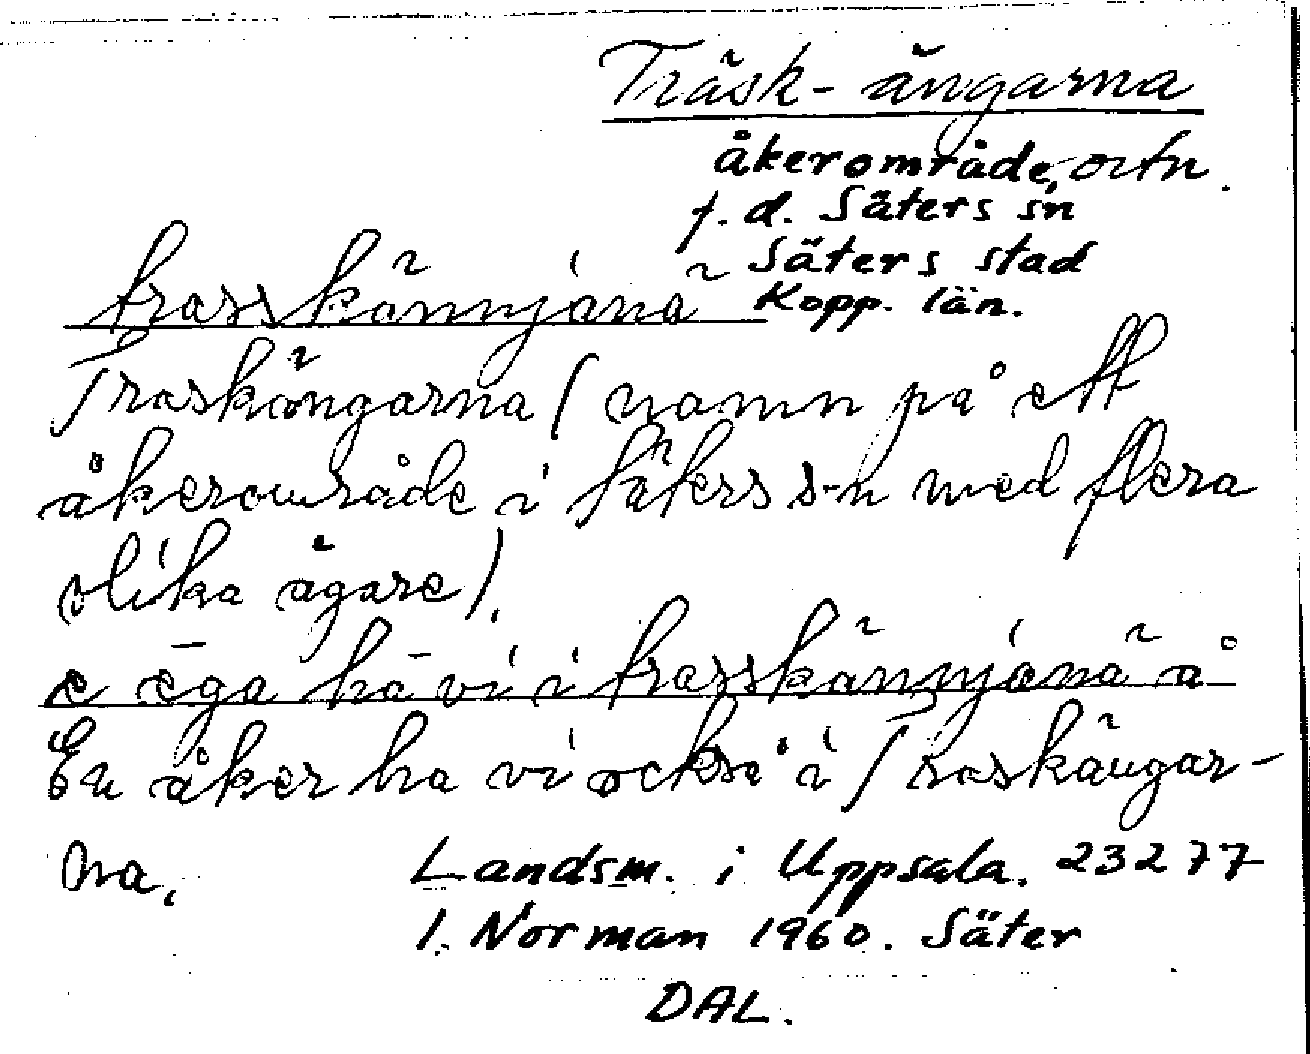 Träsk-ängarna
åkerområde, ortn.
f. d. Säters sn
Säters stad
Kopp. län.
trasskännjänä
Traskängarna (namn på ett
åkerområde i Säters s-n med flera
olika ägare).
e ēga hā vi i trasskännjänä å
En åker ha vi också i Traskängar-
na.
Landsm. i Uppsala. 23277
I. Norman 1960. Säter
DAL.